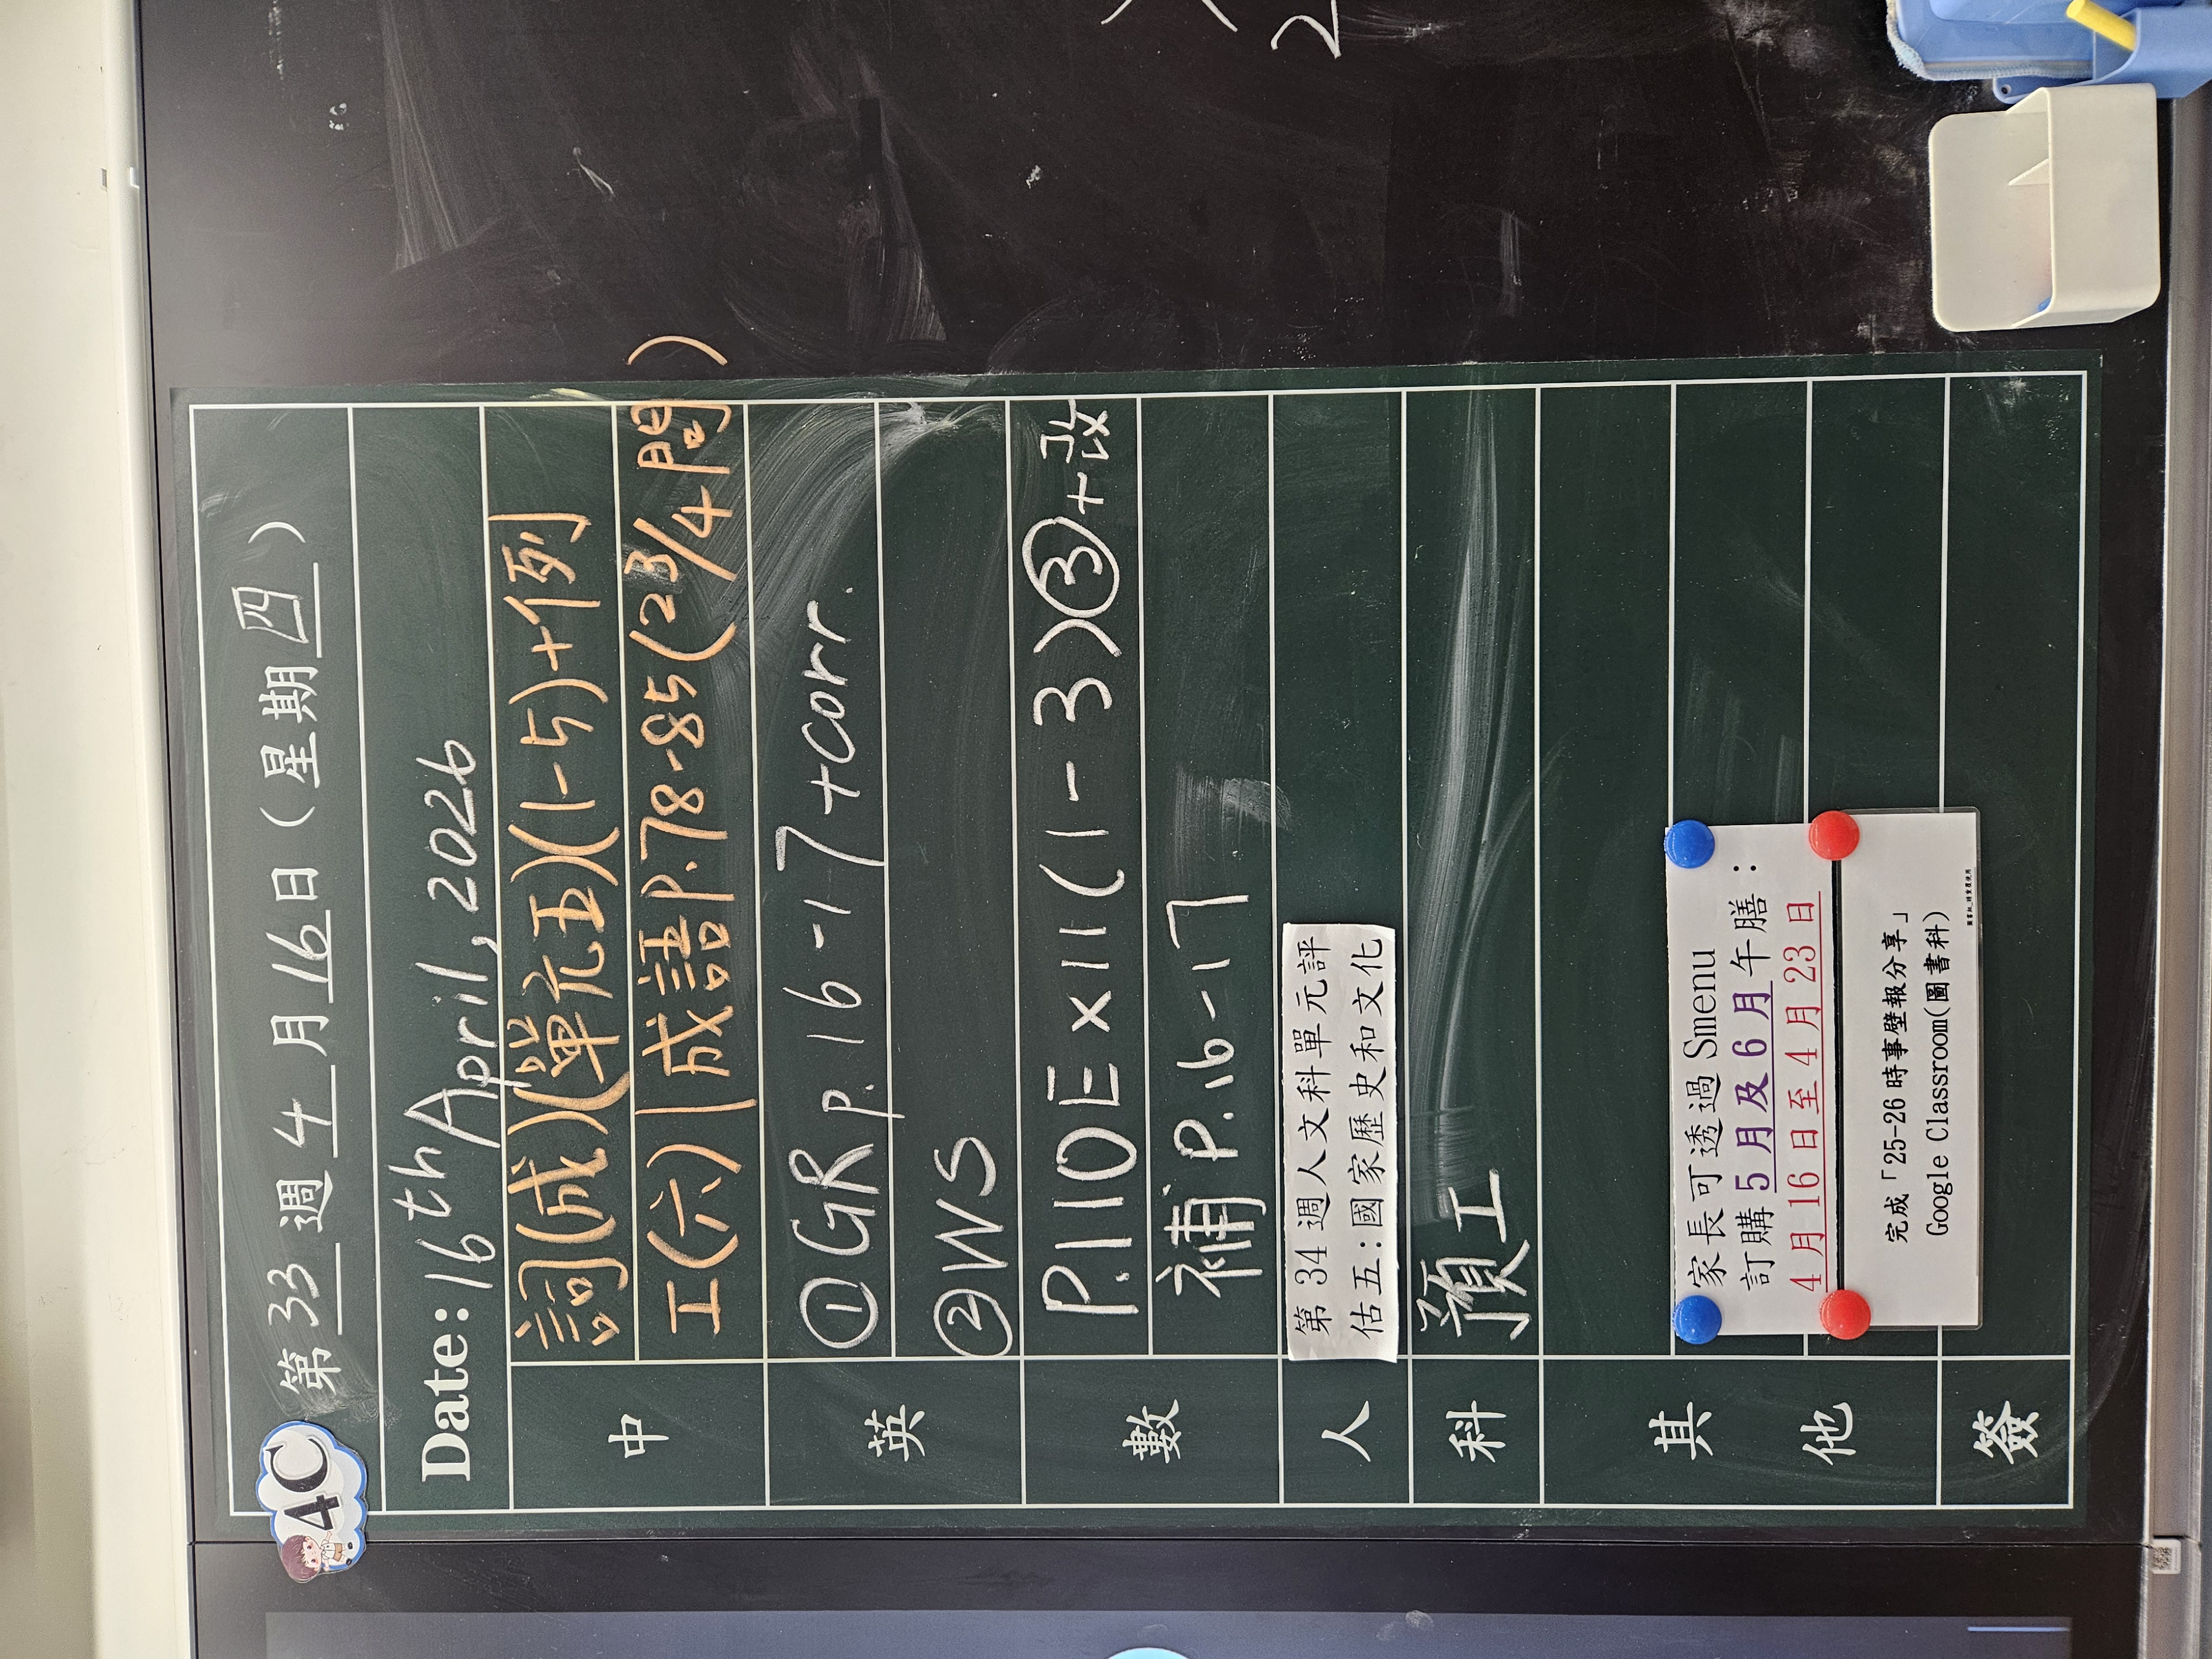 4C
第 33 週 4 月 16 日 (星期 四 )
Date: 16th April, 2026
中
詞(成)(單元五)(1-5)+例
工(六) | 成語P.78-85(23/4 問)
英
①GR p.16-17 +corr.
②WS
數
P.110Ex11(1-3)③+改
補 P.16-17
人
第 34 週人文科單元評
估五:國家歷史和文化
科
預工
其他
家長可透過 Smenu
訂購 5 月及 6 月午膳:
4 月 16 日至 4 月 23 日
完成「25-26 時事壁報分享」
Google Classroom(圖書科)
簽
2